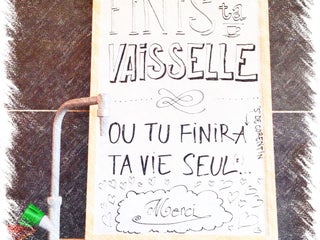 FINIS ta
VAISSELLE
OU TU FINIRA
TA VIE SEUL...
Merci